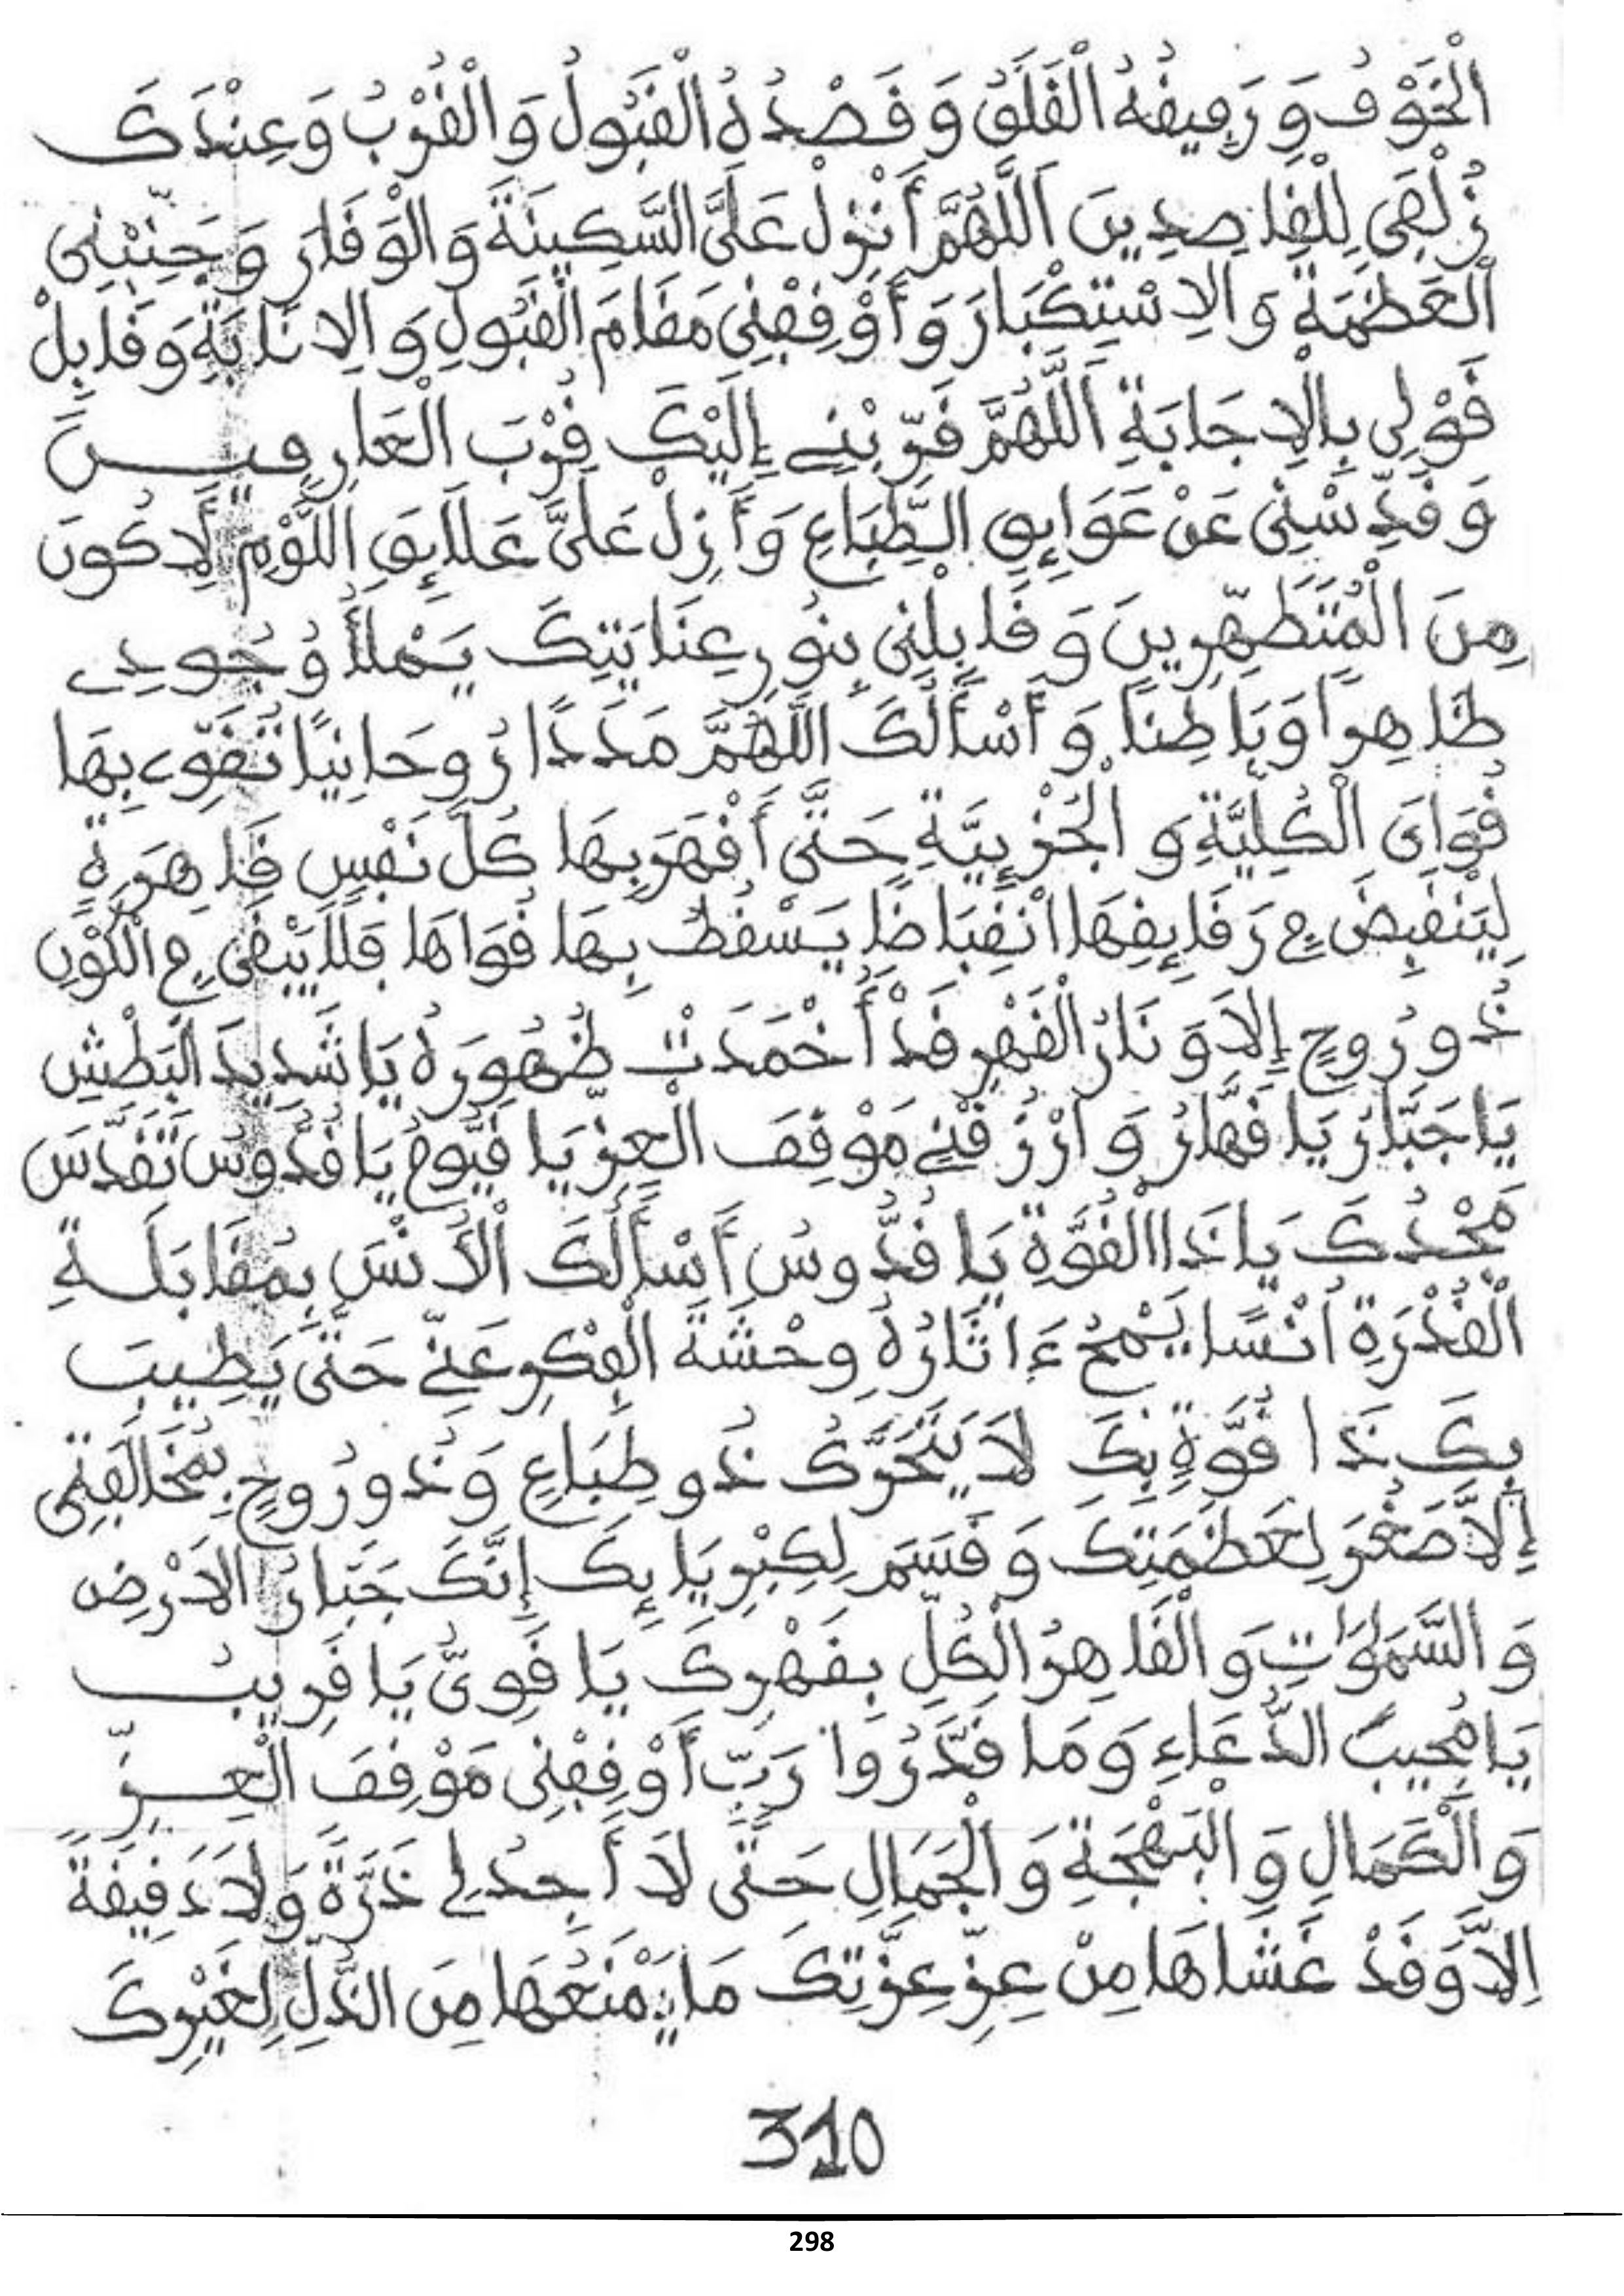 الْخَوْفُ وَرَفِيقُهُ الْقَلَقُ وَقَصْدُهُ الْقَبُولُ وَالْقُرْبُ وَعِنْدَكَ
زُلْفَى لِلْقَاصِدِينَ اَللَّهُمَّ أَنْزِلْ عَلَىَّ السَّكِينَةَ وَالْوَقَارَ وَجَنِّبْنِى
الْعَظَمَةَ وَالِاسْتِكْبَارَ وَأَوْقِفْنِى مَقَامَ الْقَبُولِ وَالِانَابَةِ وَقَابِلْ
قَوْلِى بِالْاِجَابَةِ اَللَّهُمَّ قَرِّبْنِے إِلَيْكَ قُرْبَ الْعَارِفِينَ
وَقَدِّسْنِى عَنْ عَوَايِقِ الطِّبَاعِ وَأَزِلْ عَلَىَّ عَلَايِقِ اللَّوْمِ لِاَكُونَ
مِنَ الْمُتَطَهِّرِينَ وَقَابِلْنِى بِنُورِ عِنَايَتِكَ يَمْلَأُ وُجُودِے
ظَاهِرًا وَبَاطِنًا وَأَسْأَلُكَ اللَّهُمَّ مَدَدًا رُوحَانِيًا تَقَوِّے بِهَا
قُوَاىَ الْكُلِّيَّةِ وَالْجُزْئِيَّةِ حَتَّى أَقْهَرَ بِهَا كُلَّ نَفْسٍ قَاهِرَةٍ
لِيَنْقَبِضَ فِے رَقَايِقِهَا انْقِبَاضًا يَسْقُطُ بِهَا قُوَاهَا فَلَا يَبْقَى فِے الْكَوْنِ
ذُو رُوحٍ إِلَا وَنَارُ الْقَهْرِ قَدْ أَخْمَدَتْ ظُهُورَهُ يَا شَدِيدَ الْبَطْشِ
يَا جَبَّارُ يَا قَهَّارُ وَارْزُقْنِے مَوْقِفَ الْعِزِّ يَا قَيُّومُ يَا قُدُّوسُ تَقَدَّسَ
مَجْدُكَ يَا ذَا الْقُوَّةِ يَا قُدُّوسُ أَسْأَلُكَ الْأُنْسَ بِمُقَابَلَةِ
الْقُدْرَةِ أُنْسًا يَمْحُ ءَاثَارُهُ وِحْشَةَ الْفِكْرِ عَنِّے حَتَّى يَطِيبَ
بِكَ ذَا قُوَّةٍ بِكَ لَا يَتَحَرَّكُ ذُو طِبَاعٍ وَذُو رُوحٍ بِمُخَالَفَتِى
إِلَّا صَغُرَ لِعَظَمَتِكَ وَقَسَمَ لِكِبْرِيَايِكَ إِنَّكَ جَبَّارُ الْاَرْضِ
وَالسَّمَوَاتِ وَالْقَاهِرُ الْكُلِّ بِقَهْرِكَ يَا قَوِىُّ يَا قَرِيبُ
يَا مُجِيبَ الدُّعَاءِ وَمَا قَدَّرُوا رَبِّ أَوْقِفْنِى مَوْقِفَ الْعِزِّ
وَالْكَمَالِ وَالْبَهْجَةِ وَالْجَمَالِ حَتَّى لَا أَجِدُ لِے ذَرَّةً وَلَا دَقِيقَةً
اِلَّا وَقَدْ غَشَاهَا مِنْ عِزِّ عِزَّتِكَ مَا يَمْنَعُهَا مِنَ الذُّلِّ لِغَيْرِكَ
310
298